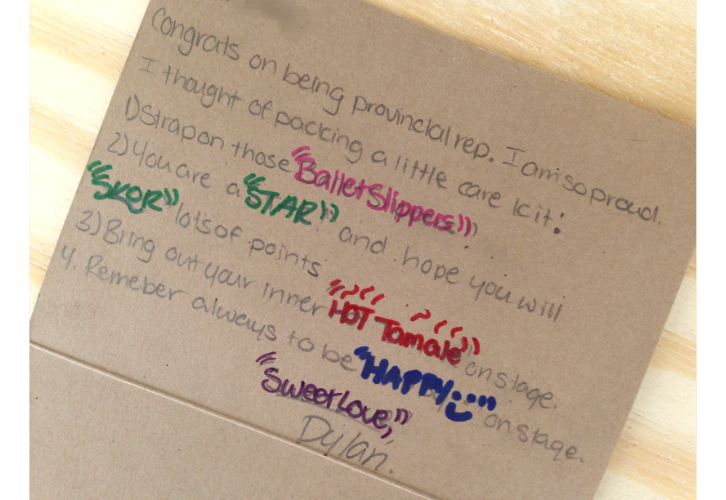 Congrats on being provincial rep. I am so proud.
I thought of packing a little care kit:
1) Strap on those "Ballet Slippers"
2) You are a "STAR" and hope you will
"SKOR" lots of points
3) Bring out your inner "HOT Tamale" on stage.
4. Remeber always to be "HAPPY" on stage.
"Sweet Love,"
Dylan.